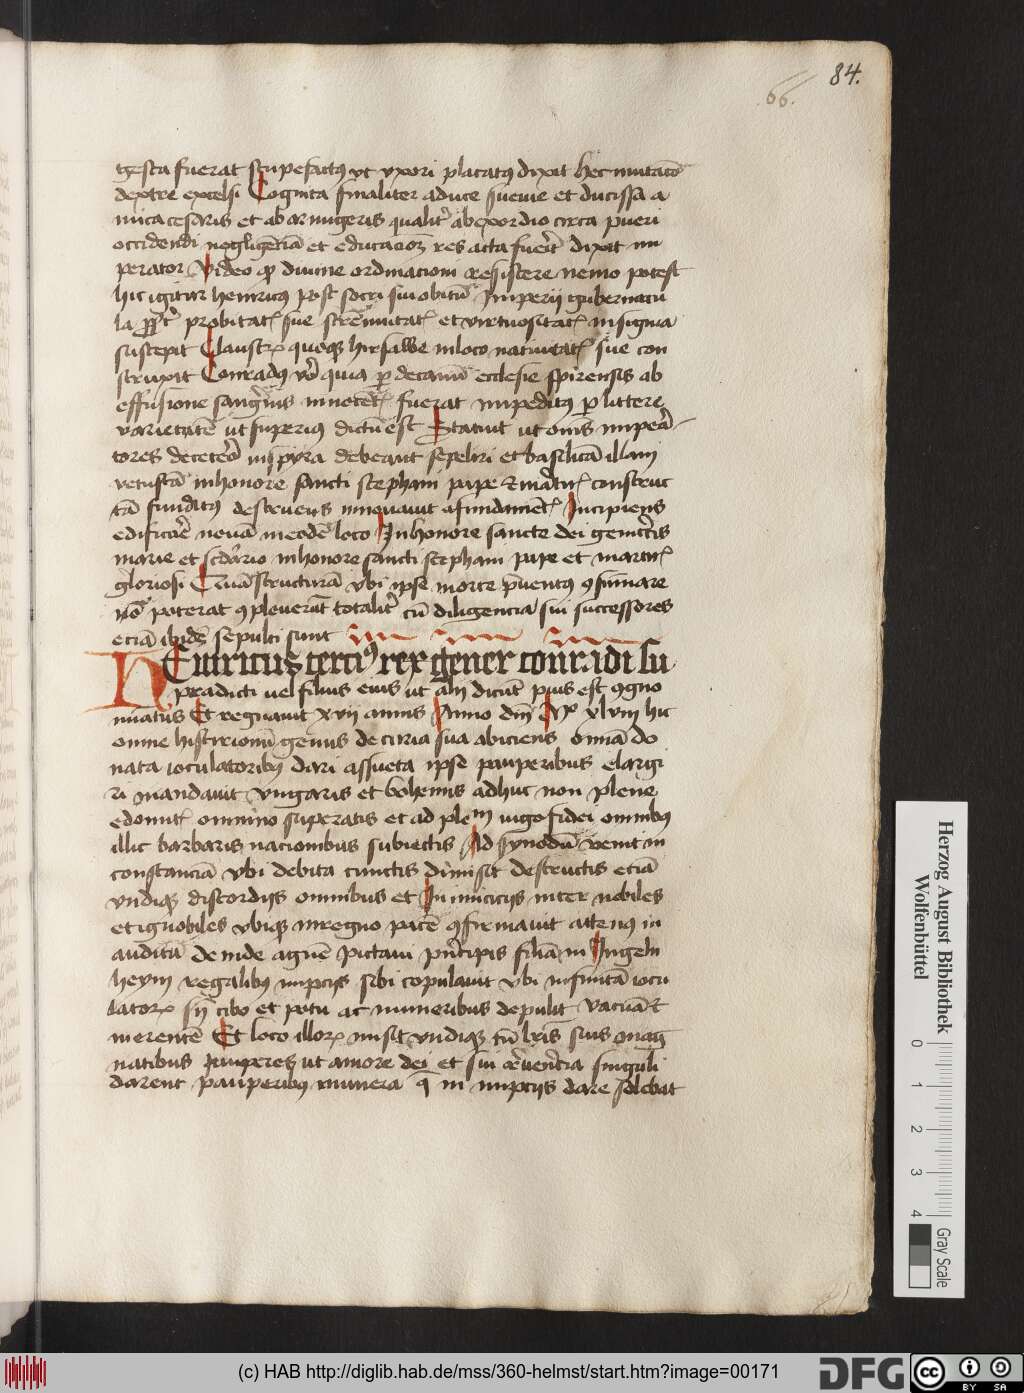 84.
66.
gesta fuerat stupefactus vt vxori placatus dixit hec mutatio
dextre excelsi Cognita finaliter a duce sueuie et ducissa a
mita cesaris et ab armigeris qualiter ab exordio circa pueri
occidendi negligēciā et educacionē res acta fuerit dixit im
perator Video quod diuine ordinacioni resistere nemo potest
hic igitur heinricus post soceri sui obitū Imperii gubernacu
la propter probitatē sue strēnuitatē et virtuositatē insignia
suscepit Claustrū quoque hirsawe in loco natiuitatis sue con
struxit Conradus vero quia per decanū ecclesie spirensis ab
effusione sanguinis innocentis fuerat impeditus per littere
varietatē ut superius dictū est Statuit ut omnes impera
tores decetero in spyra debeant sepeliri et basilicā illam
vetustā in honore sancti stephani pape et martiris construc
tā funditus destruens innouauit a fundamentis Incipiens
edificare nouā in eodē loco In honore sancte dei genitricis
marie et secundario in honore sancti stephani pape et martiris
gloriosi Quā structurā vbi ipse morte preuentus consumare
nō poterat compleuerūt totaliter cū diligencia sui successores
eciā ibidē sepulti sunt
HEinricus tercius rex gener conradi su
pradicti uel filius eius ut alij dicūt pius est cogno
minatus Et regnauit xvij annis Anno dm̄ Mo xl viij hic
omne histrionū genus de curia sua abiciens omnia do
nata ioculatoribus dari assueta ipse pauperibus elargi
ri mandauit Vngaris et bohemis adhuc non plene
edomitis omnino superatis et ad plenū iugo fidei omnibus
illic barbaris nacionibus subiectis Ad synodū venit in
constanciā vbi debita cunctis dimisit destructis eciā
vndique discordijs omnibus et Inimicicijs inter nobiles
et ignobiles vbique in regno pacē confirmauit actenus in
auditā deinde agnē pictaui principis filiā in Ingeln
heym regalibus nupcijs sibi copulauit vbi infinitā iocu
latorū sine cibo et potu ac muneribus depulit vacuā et
merentē Et loco illorū misit vndique cū literis suis mag
natibus pauperes ut amore dei et sui reuerencia singuli
darent pauperibus munera que in nupcijs dare solebāt
Herzog August Bibliothek
Wolfenbüttel
0
1
2
3
4
Gray Scale
(c) HAB http://diglib.hab.de/mss/360-helmst/start.htm?image=00171
DFG
cc
BY
SA